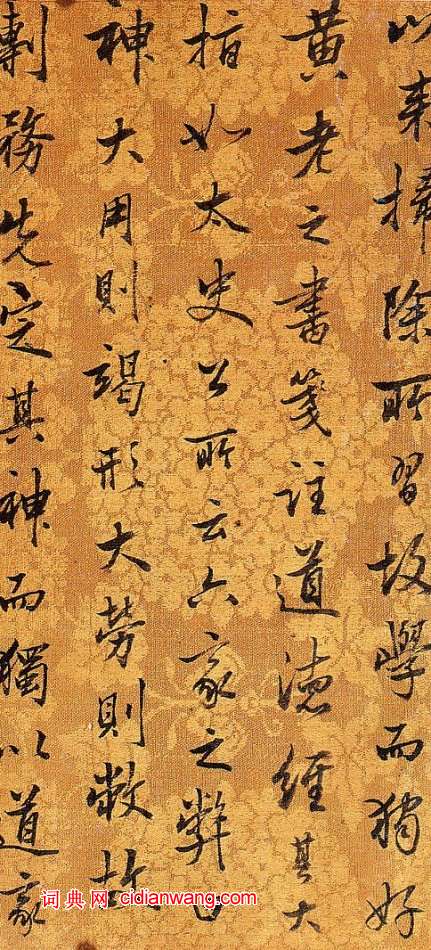 以来掃除所習故學而獨好
黄老之書箋註道德經其大
指如太史公所云六家之弊曰
神大用則竭形大勞則敝故
務先定其神而獨以道家
词典网 cidianwang.com